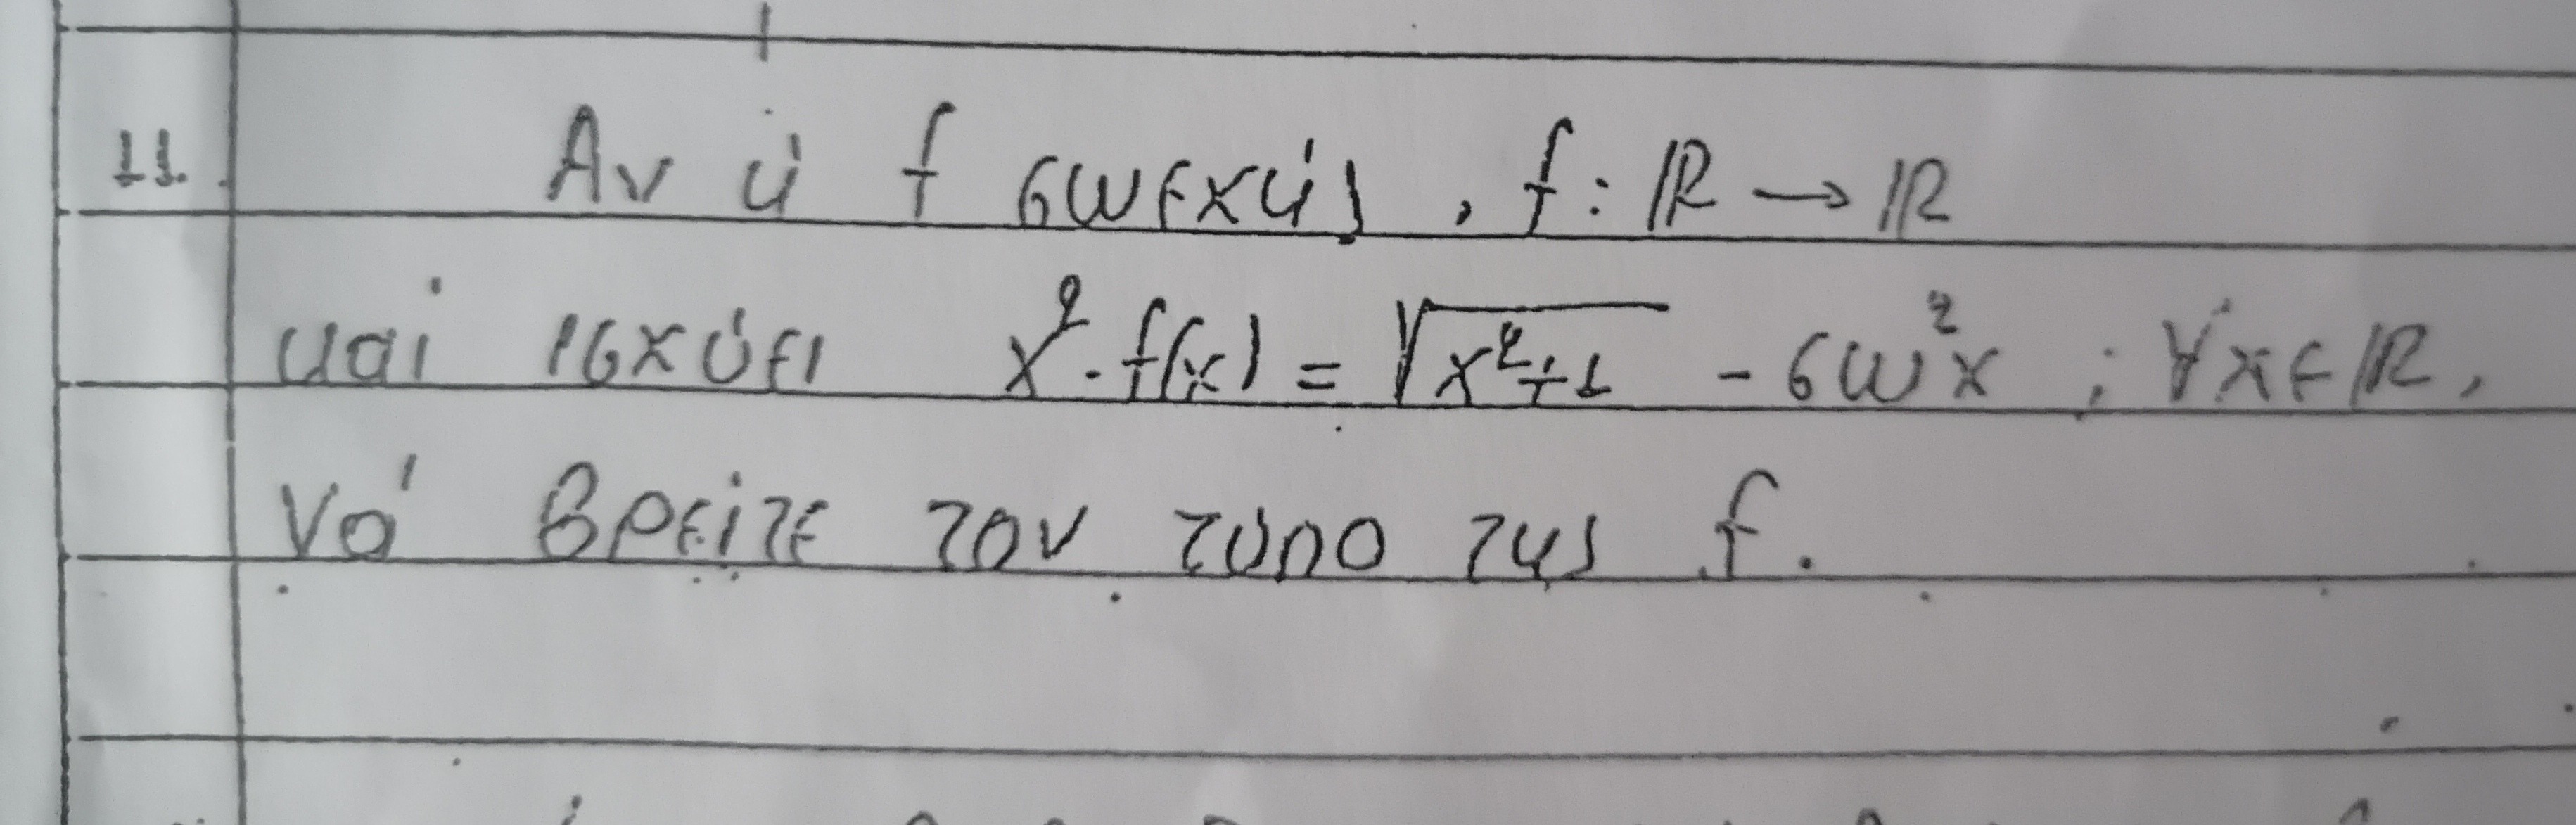 11. Αν ή f συνεχής , f: ℝ → ℝ
καί ισχύει x² · f(x) = √(x²+1) - συν²x , ∀x∈ℝ,
νά βρείτε τον τύπο της f.